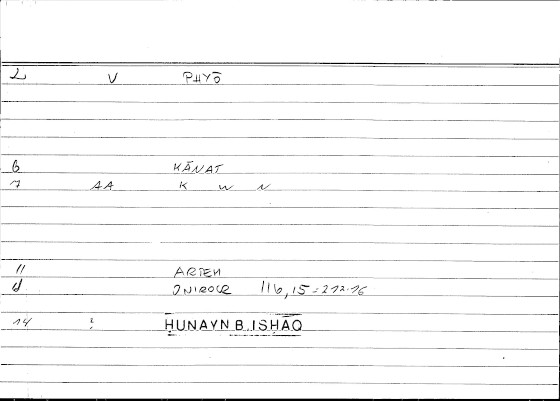 2 V PHYŌ
6 KĀNAT
7 AA K W N
11 ARTEM
d 116,15=212.16
14 : ḤUNAYN B. ISḤĀQ